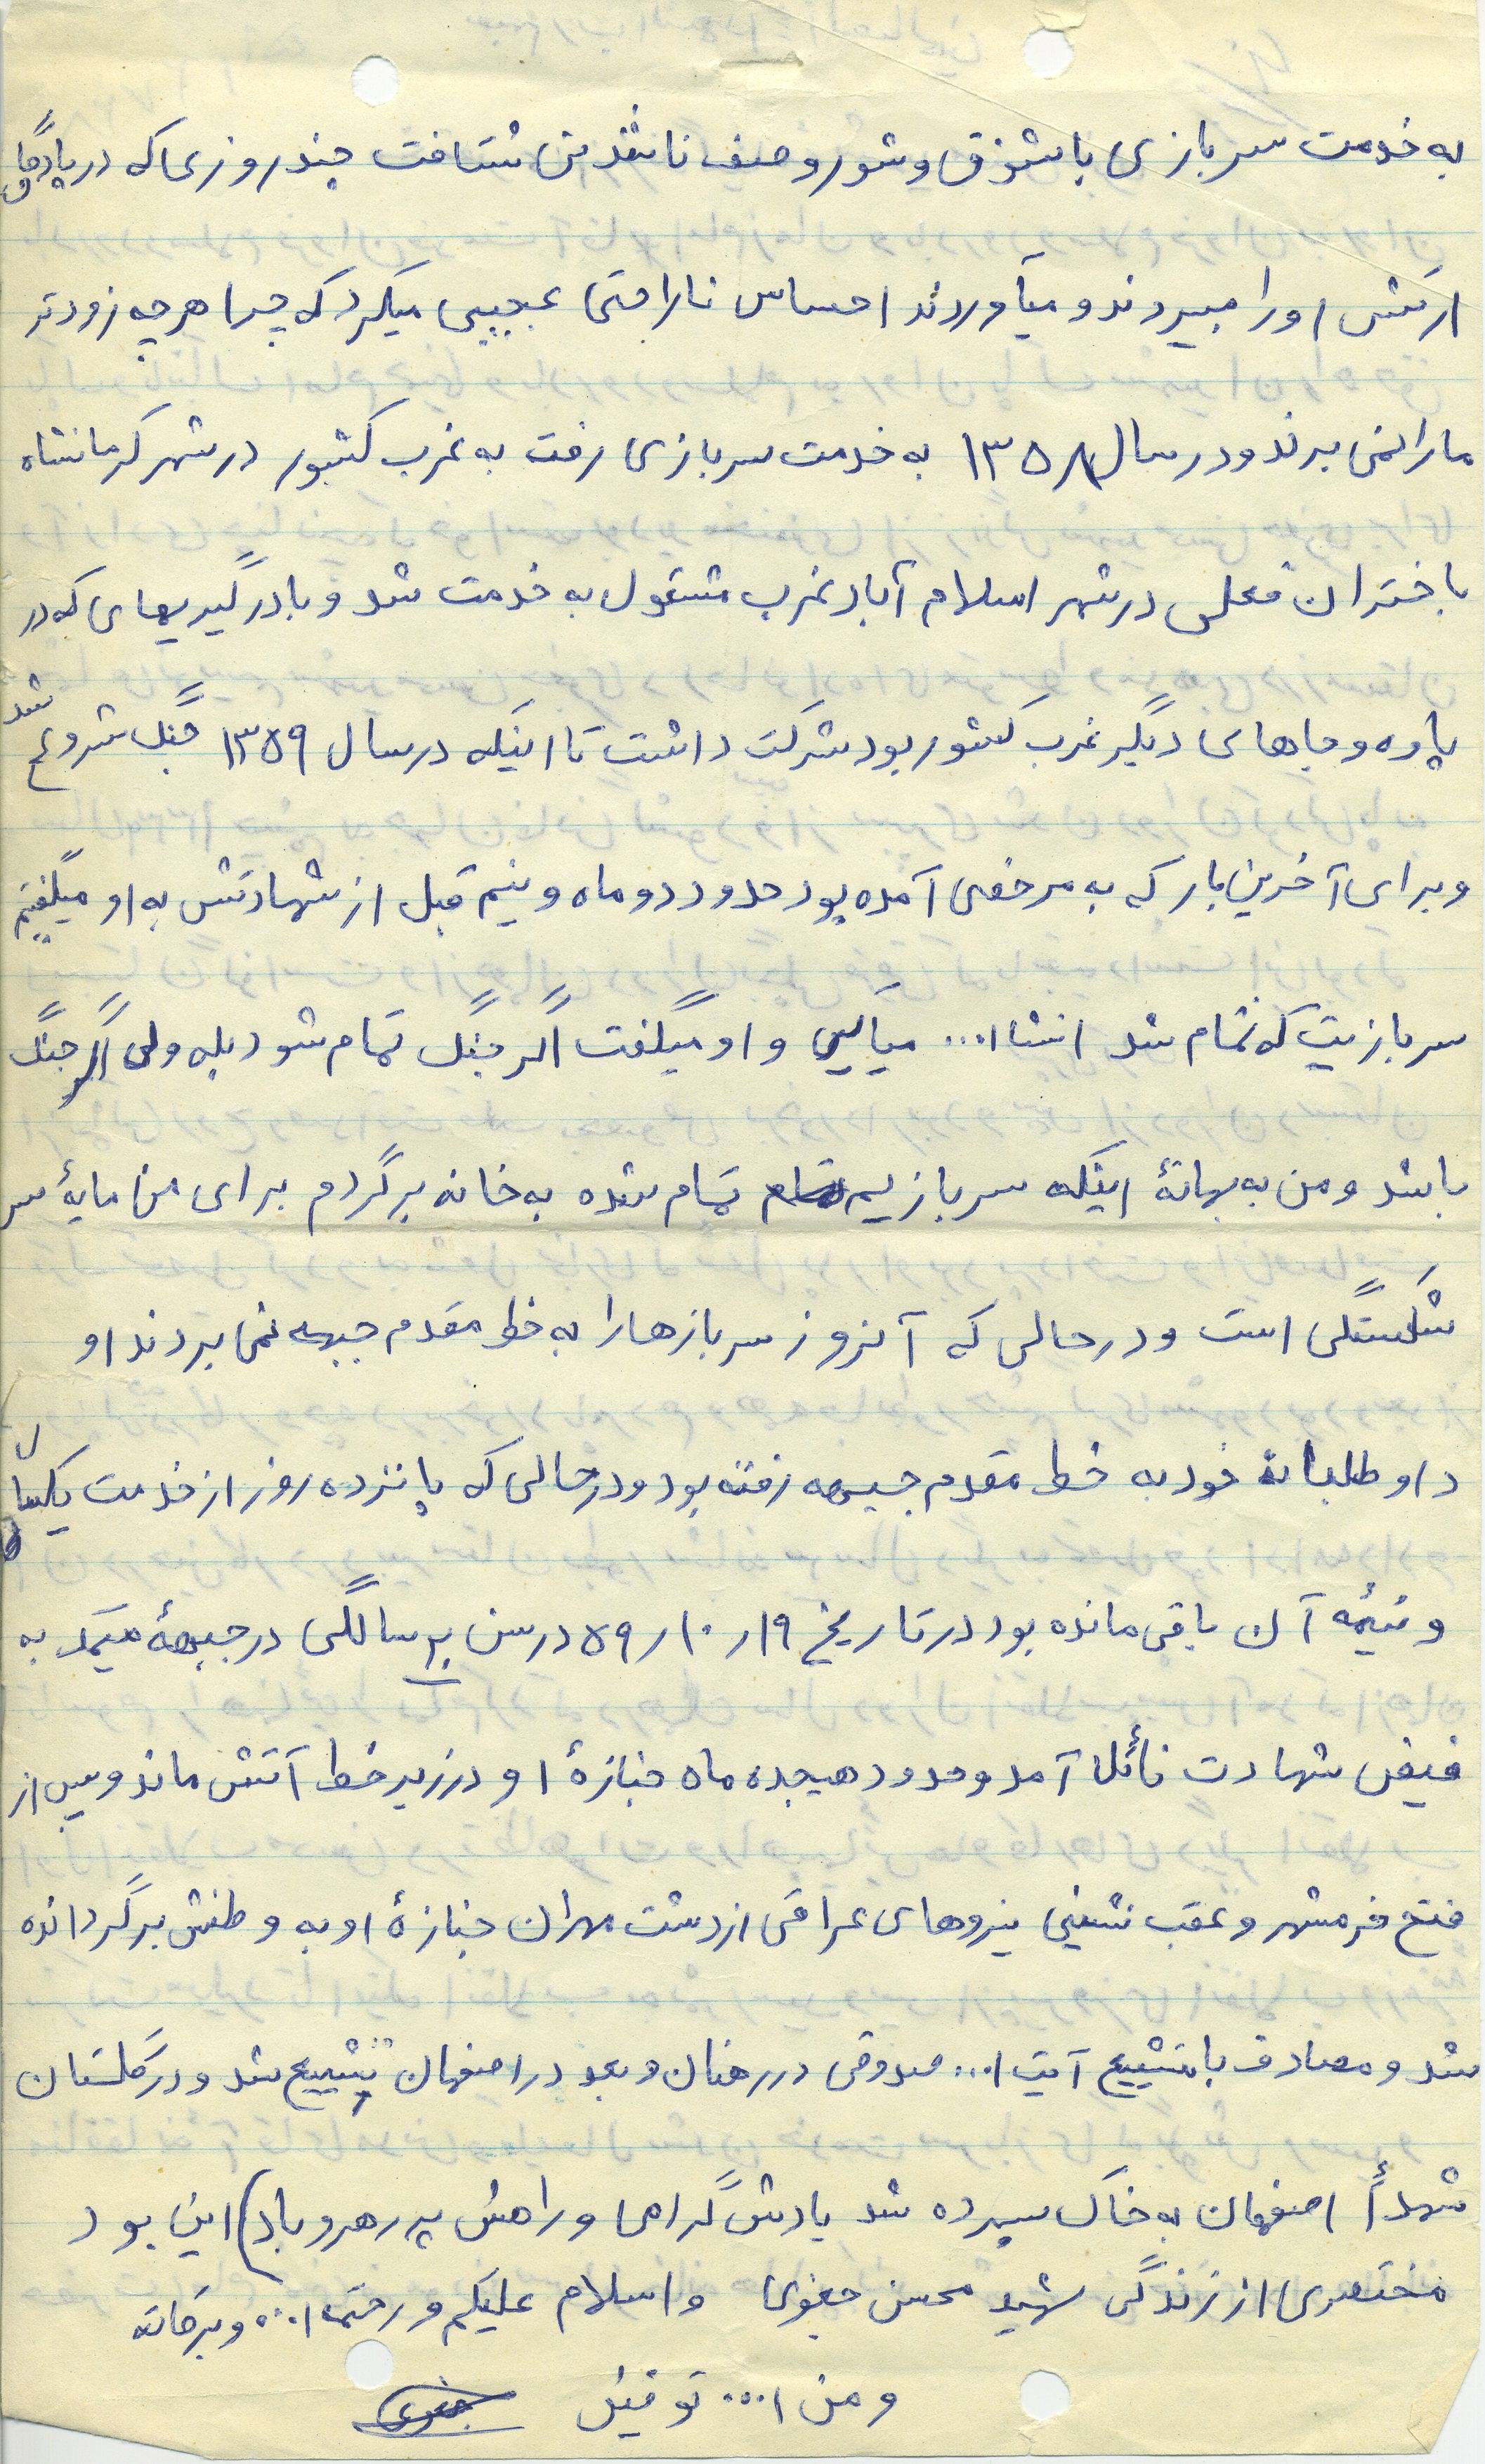 به خدمت سربازی با شوق و شور وصف ناشدنی شتافت چند روزی که در پادگان
ارتش او را میبردند و میآوردند احساس ناراحتی عجیبی میکرد که چرا هرچه زودتر
ما را نمی برند و در سال ۱۳۵۸ به خدمت سربازی رفت به غرب کشور در شهر کرمانشاه
باختران فعلی در شهر اسلام آباد غرب مشغول به خدمت شد و با درگیریهای که در
پاوه و جاهای دیگر غرب کشور بود شرکت داشت تا اینکه در سال ۱۳۵۹ جنگ شروع شد
و برای آخرین بار که به مرخصی آمده بود حدود دو ماه و نیم قبل از شهادتش به او میگفتیم
سربازیت که تمام شد انشاا... میآیی و او میگفت اگر جنگ تمام شود بله ولی اگر جنگ
باشد و من به بهانهٔ اینکه سربازیم تمام شده به خانه برگردم برای من مایهٔ سر
شکستگی است و در حالی که آنروز سربازها را به خط مقدم جبهه نمی بردند او
داوطلبانه خود به خط مقدم جبهه رفته بود و در حالی که پانزده روز از خدمت یکسال
و نیمه آن باقی مانده بود در تاریخ ۱۹ر۱۰ر۵۹ در سن ۲۰ سالگی در جبههٔ میمک به
فیض شهادت نائل آمد و حدود هیجده ماه جنازهٔ او در زیر خط آتش ماند و پس از
فتح خرمشهر و عقب نشینی نیروهای عراقی از دشت مهران جنازهٔ او به وطنش برگردانده
شد و مصادف با تشییع آیت ا... صدوقی در رهنان و بعد در اصفهان تشییع شد و در گلستان
شهدأ اصفهان به خاک سپرده شد یادش گرامی و راهش پر رهرو باد) این بود
مختصری از زندگی شهید محسن جعفری واسلام علیکم و رحمت ا... و برکاته
و من ا... توفیق